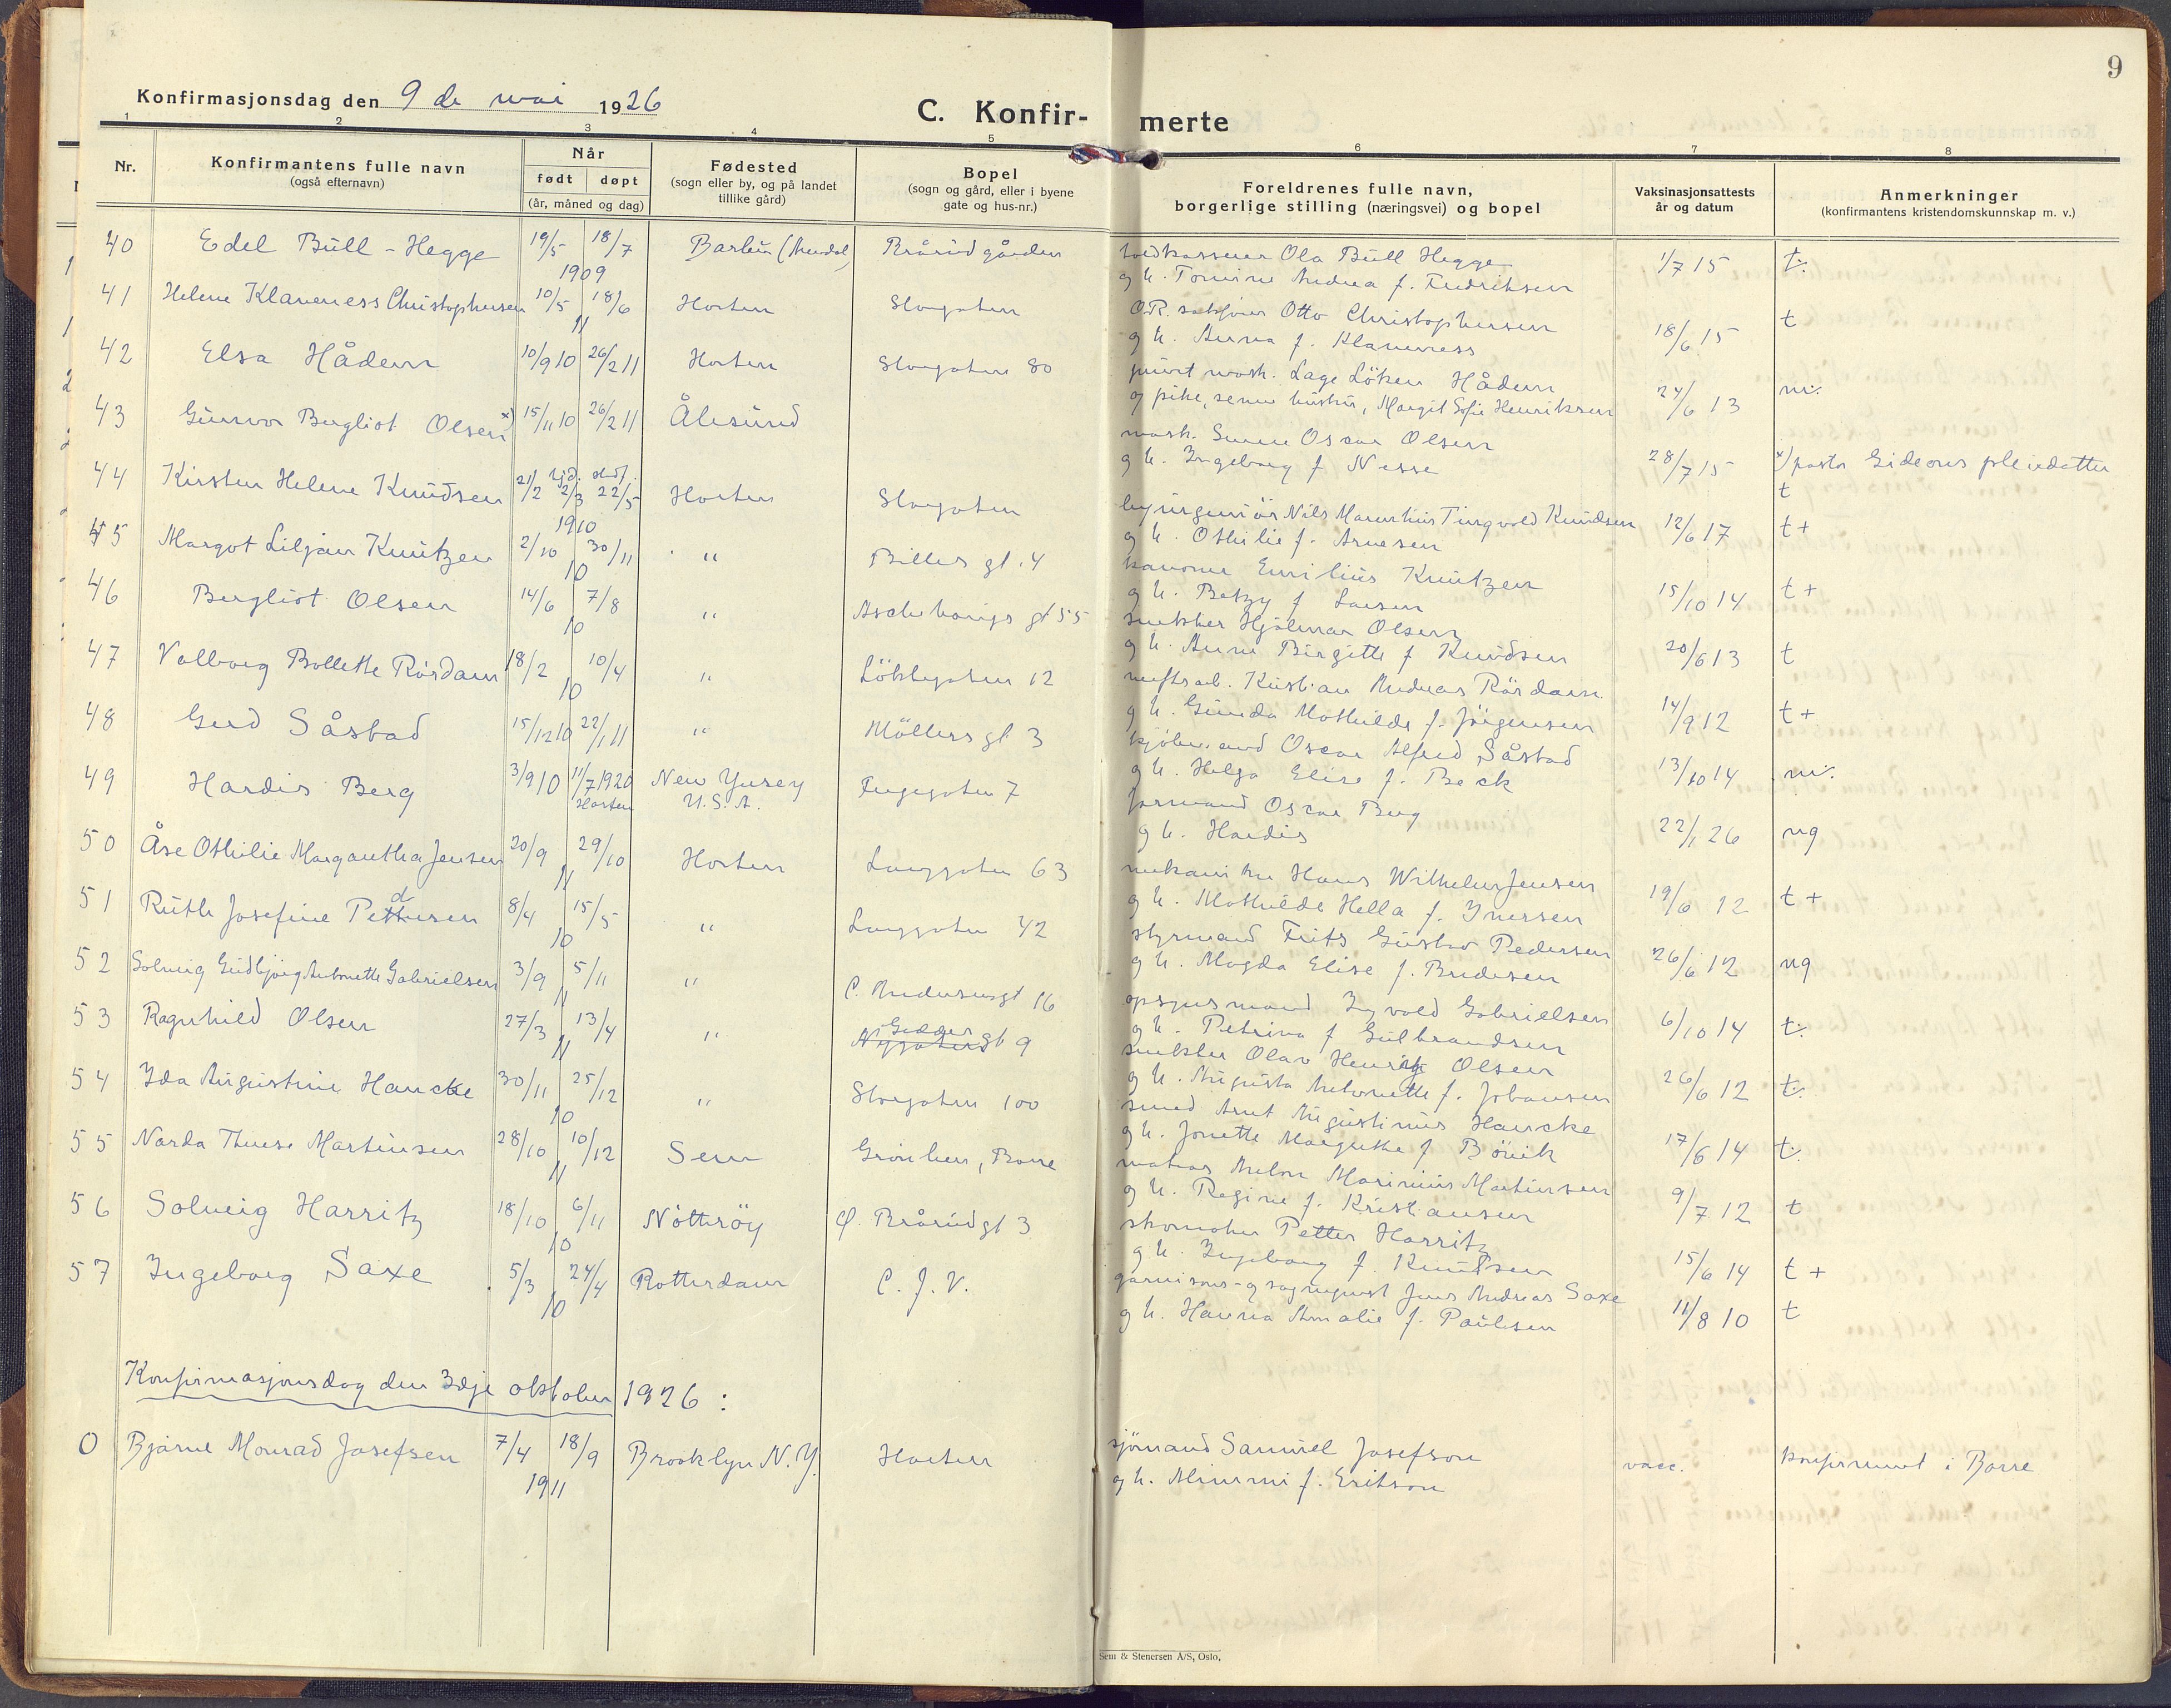 9
Konfirmasjonsdag den 9 de mai 1926
C. Konfir-
merte
1 2 3 4 5 6 7 8
Nr. Konfirmantens fulle navn (også efternavn) Når født døpt (år, måned og dag) Fødested (sogn eller by, og på landet tillike gård) Bopel (sogn og gård, eller i byene gate og hus-nr.) Foreldrenes fulle navn, borgerlige stilling (næringsvei) og bopel Vaksinasjonsattests år og datum Anmerkninger (konfirmantens kristendomskunnskap m. v.)
40 Edel Bull-Hegge 19/5 18/7 1909 Barbu (Arendal) Brårudgården tollkasserer Ola Bull Hegge 1/7 15 t.
og h. Tomine Andrea f. Fredriksen
41 Helene Klaveness Christophersen 10/5 18/6 11 Horten Storgaten O.R. sakfører Otto Christophersen 18/6 15 t
og h. Anna f. Klaveness
42 Elsa Håden 10/9 10 26/2 11 Horten Storgaten 80 Lage Löken Håden 24/6 13 m.
og pike, senere hustru, Margit Sofie Henriksen
43 Gunvor Bergliot Olsen x) 15/11 10 26/2 11 Ålesund mask. Oscar Olsen 28/7 15 x) pastor Gideons pleiedatter
og h. Ingeborg f. Nesse t
44 Kirsten Helene Knudsen 21/2 hjd. 2/3 stadf. 22/5 1910 Horten Storgaten Nils Marenius Tingvold Knudsen 12/6 17 t +
og h. Othilie f. Arnesen
45 Margot Liljan Knutzen 2/10 30/11 10 " Billes gt. 4 kanoner Emilius Knutzen 15/10 14 t +
og h. Betzy f. Larsen
46 Bergliot Olsen 14/6 7/8 10 " Aschehougs gt 55 snekker Hjalmar Olsen 20/6 13 t
og h. Anne Birgitte f. Knudsen
47 Valborg Bollette Rørdam 18/2 10/4 10 " Lökkegaten 12 verftsarb. Kristian Andreas Rördam. 14/9 12 t +
og h. Gunda Mathilde f. Jörgensen
48 Gerd Såstad 15/12 10 22/1 11 " Möllers gt 3 kjöbmand Oscar Alfred Såstad 13/10 14 m.
og h. Helga Elise f. Beck
49 Hardis Berg 3/9 10 11/7 1920 Horten New Yersey U.S.A. Fugegaten 7 formand Oscar Berg 22/1 26 ng
og h. Hardis
50 Åse Othilie Margaretha Jensen 20/9 29/10 11 Horten Langgaten 63 mekaniker Hans Wilhelm Jensen 19/6 12 t +
og h. Mathilde Hella f. Iversen
51 Ruth Josefine Pettersen d 8/4 15/5 10 " Langgaten 42 styrmand Frits Gustav Pedersen 26/6 12 ng
og h. Magda Elise f. Bredesen
52 Solveig Gudbjörg Antonette Gabrielsen 3/9 5/11 11 " C. Andersensgt 16 opsynsmand Ingvald Gabrielsen 6/10 14 t.
og h. Petrina f. Gulbrandsen
53 Ragnhild Olsen 27/3 13/4 11 " Nygaten Gedder gt 9 snekker Olav Henrik Olsen 26/6 12 t.
og h. Augusta Antonette f. Johansen
54 Ida Augustine Hancke 30/11 25/12 10 " Storgaten 100 smed Arnt Augustinus Hancke 17/6 14 t.
og h. Jonette Margrethe f. Bövik
55 Narda Therese Martinsen 28/10 10/12 11 Sem Grönlien, Borre matros Anton Marinius Martinsen 9/7 12 t
og h. Regine f. Kristiansen
56 Solveig Harritz 18/10 6/11 10 Nötterøy Ø. Brårudgt 3 skomaker Petter Harritz 15/6 14 t +
og h. Ingeborg f. Knudsen
57 Ingeborg Saxe 5/3 24/4 10 Rotterdam C. J. V. garnisons- og sogneprest Jens Andreas Saxe 11/8 10 t
og h. Hanna Amalie f. Paulsen
Konfirmasjonsdag den 3dje oktober 1926 :
0 Bjarne Monrad Josefsen 7/4 18/9 1911 Brooklyn N. Y. Horten sjömand Samuel Josefson vacc. konfirmert i Borre
og h. Mimmi f. Erikson
Sem & Stenersen A/S, Oslo.